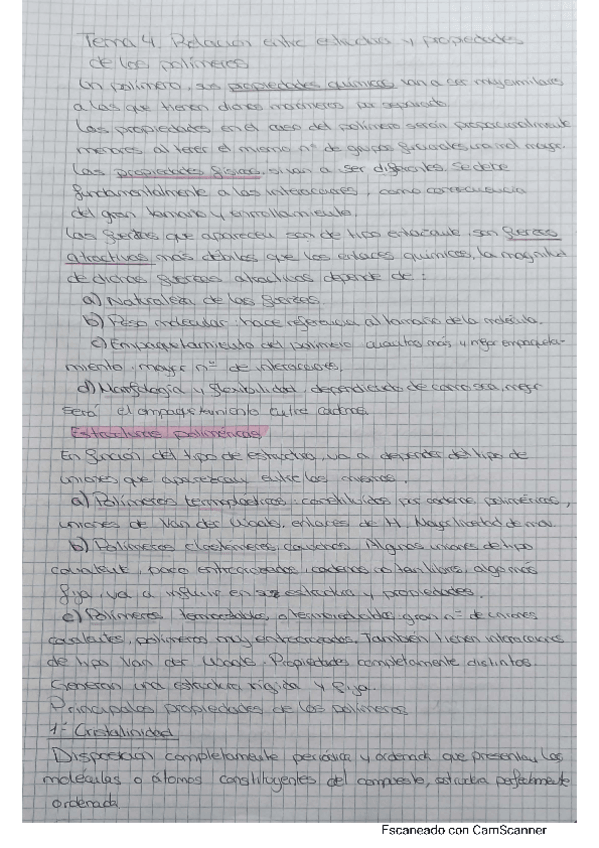 Tema 4. Relación entre estructura y propiedades
de los polímeros
Un polímero, sus propiedades químicas van a ser muy similares
a las que tienen dichos monómeros por separado.
Las propiedades en el caso del polímero serán proporcionalmente
menores al tener el mismo nº de grupos funcionales
Las propiedades físicas, si van a ser diferentes. Se debe
fundamentalmente a las interacciones, como consecuencia
del gran tamaño y enrollamiento.
Las fuerzas que aparecen son de tipo son fuerzas
atractivas más débiles que los enlaces químicos, la magnitud
de dichas fuerzas atractivas depende de:
a) Naturaleza de las fuerzas.
b) Peso molecular: hace referencia al tamaño de la molécula.
c) Empaquetamiento del polímero cuanto más y mejor empaqueta-
miento, mayor nº de interacciones.
d) Morfología y flexibilidad, dependiendo de como sea, mejor
será el empaquetamiento entre cadenas.
Estructuras poliméricas
En función del tipo de estructura, va a depender del tipo de
uniones que aparezcan entre los mismos.
a) Polímeros termoplásticos: constituidos por cadenas poliméricas,
uniones de Van der Waals, enlaces de H. Mayor libertad de mov.
b) Polímeros elastómeros, Algunas uniones de tipo
covalente, poco entrecruzados, cadenas no tan libres, algo más
fija, va a influir en su estructura y propiedades.
c) Polímeros termoestables o gran nº de uniones
covalentes, polímeros muy entrecruzados. También tienen interacciones
de tipo Van der Waals. Propiedades completamente distintas.
Generan una estructura rígida y fija.
Principales propiedades de los polímeros
1- Cristalinidad
Disposición completamente periódica y ordenada que presentan las
moléculas o átomos constituyentes del compuesto, estructura perfectamente
ordenada.
Escaneado con CamScanner